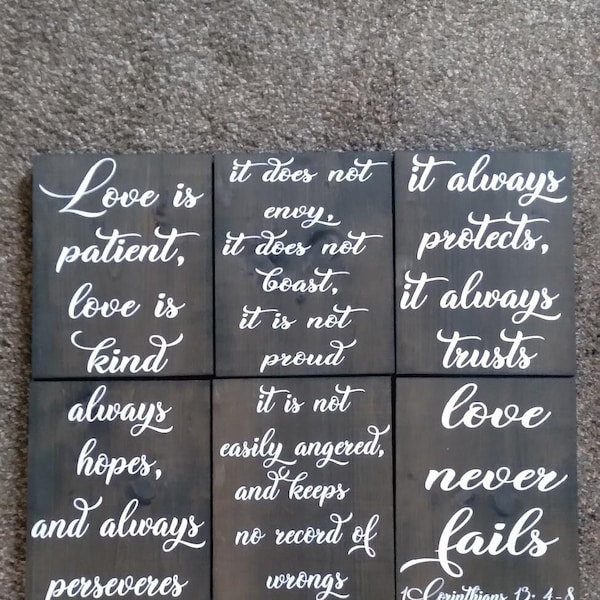 Love is
patient,
love is
kind
it does not
envy,
it does not
boast,
it is not
proud
it always
protects,
it always
trusts
always
hopes,
and always
perseveres
it is not
easily angered,
and keeps
no record of
wrongs
love
never
fails
1 Corinthians 13: 4-8